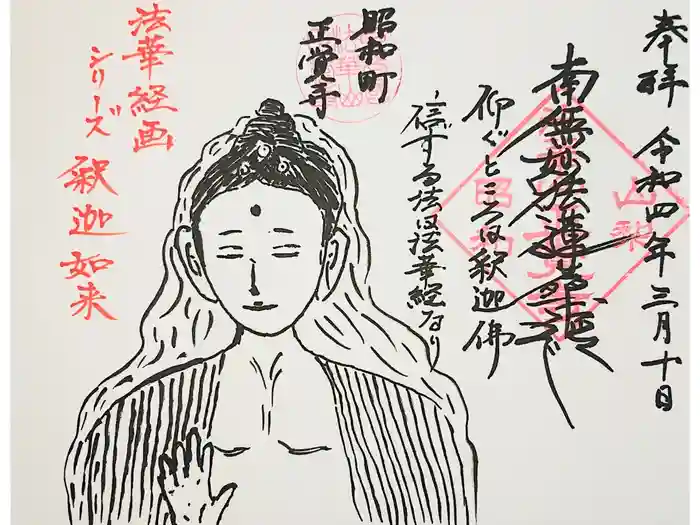 奉拝 令和四年三月十日
南無妙法蓮華経
仰ぐところは釈迦佛
信ずる法は法華経なり
昭和町
正覚寺
法華経画
シリーズ
釈迦如来